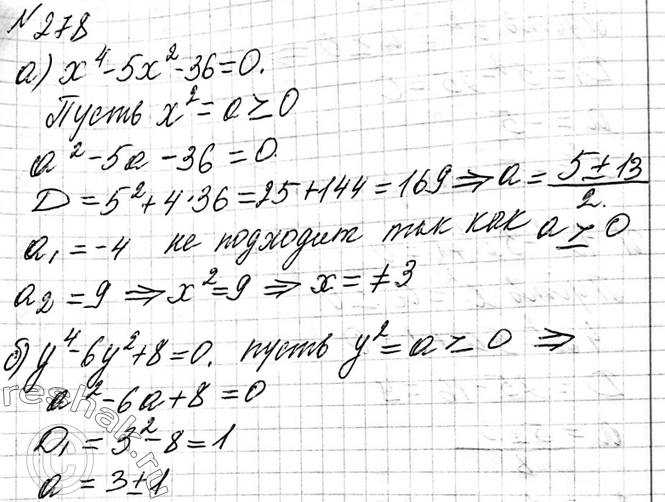 №278
а) x⁴-5x²-36=0.
Пусть x²=a≥0
a²-5a-36=0.
D=5²+4·36=25+144=169⇒a=(5±13)/2.
a₁=-4 не подходит так как a≥0
a₂=9⇒x²=9⇒x=±3
б) y⁴-6y²+8=0. пусть y²=a≥0 ⇒
a²-6a+8=0
D₁=3²-8=1
a=3±1